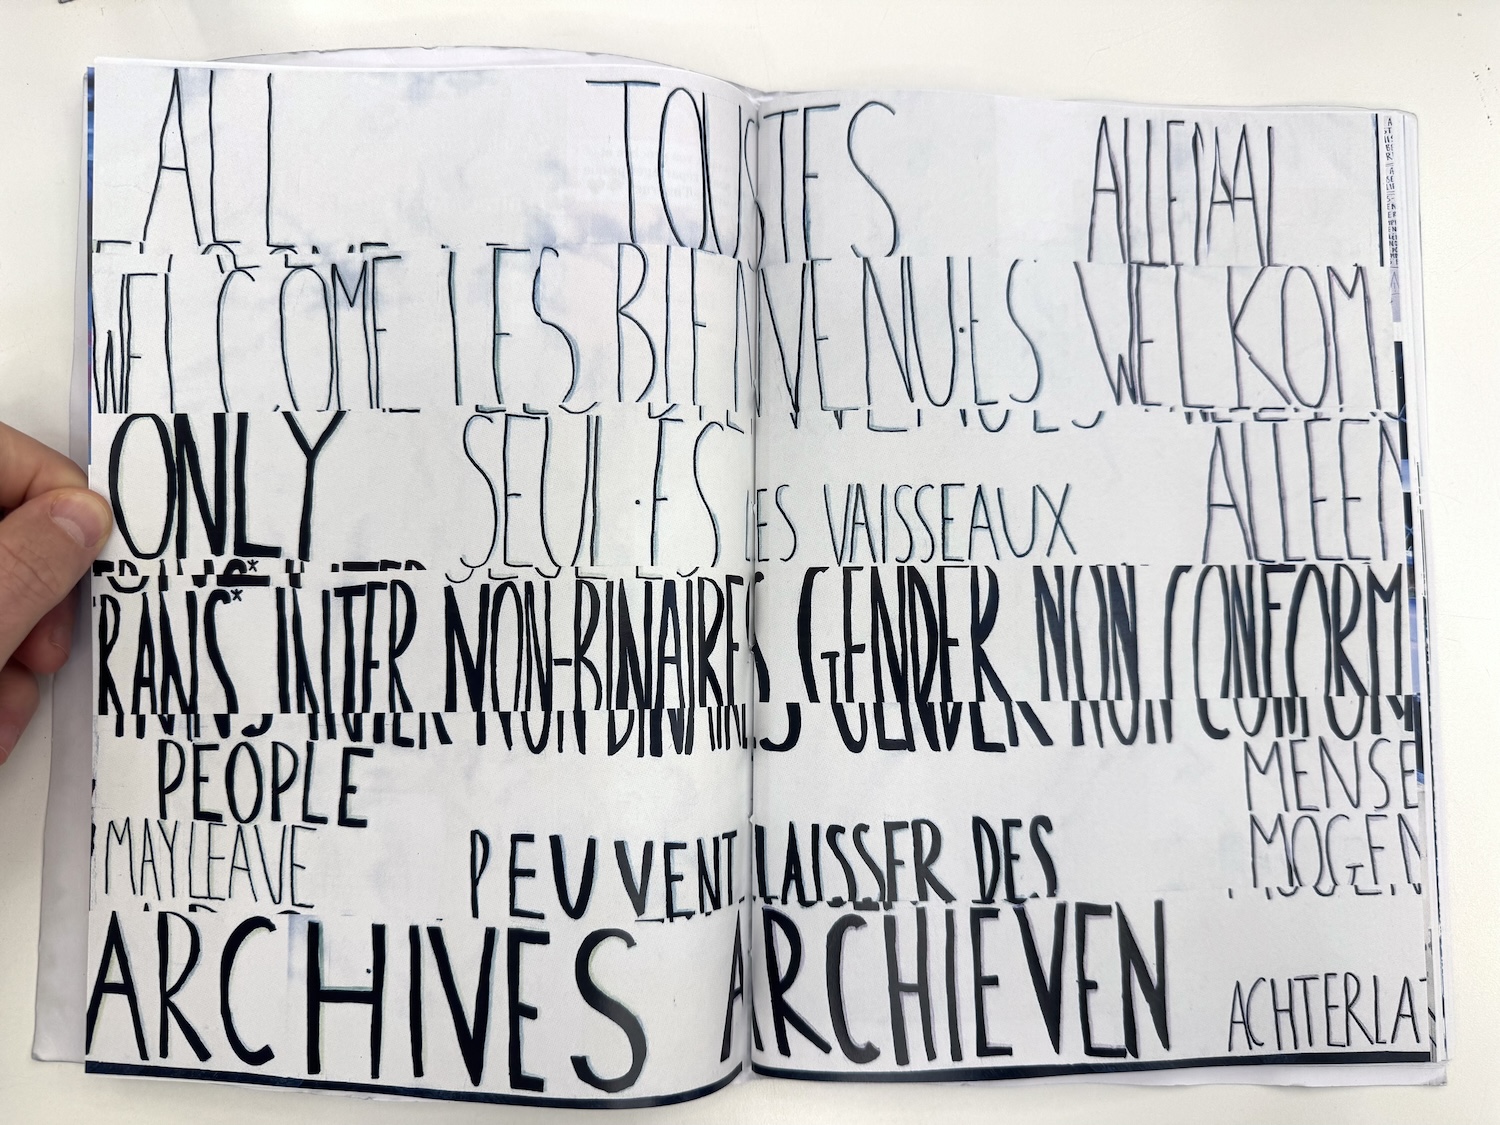 ALL TOUSTES ALLEMAAL
WELCOME LES BIENVENU·ES WELKOM
ONLY SEUL·ES LES VAISSEAUX ALLEEN
TRANS* INTER NON-BINAIRES GENDER NON CONFORM
PEOPLE MENSE
MAY LEAVE PEUVENT LAISSER DES MOGEN
ARCHIVES ARCHIEVEN ACHTERLAT